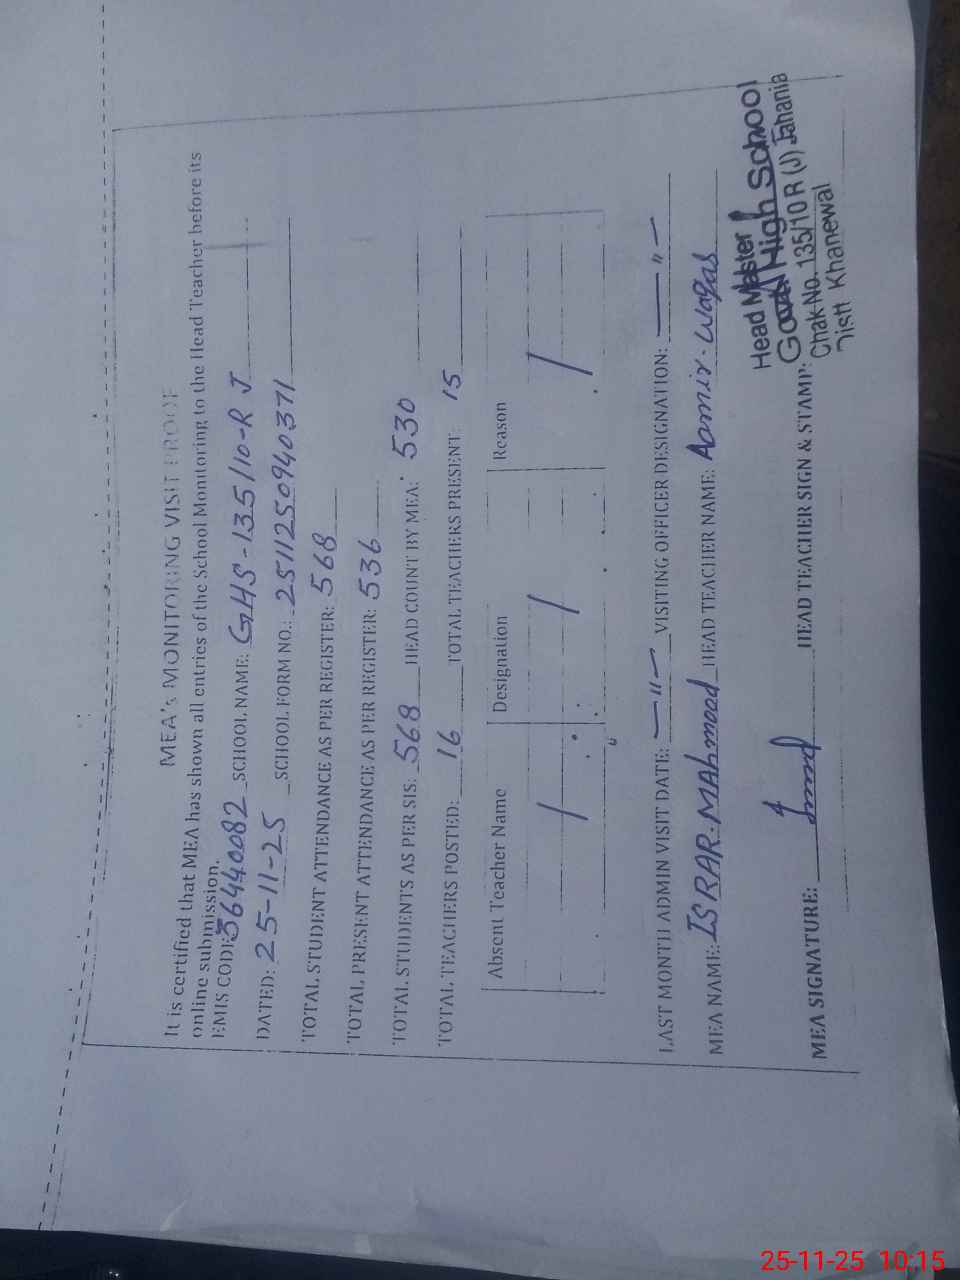 MEA's MONITORING VISIT PROOF
It is certified that MEA has shown all entries of the School Monitoring to the Head Teacher before its
online submission.
EMIS CODE: 36440082 SCHOOL NAME: GHS-135/10-R J
DATED: 25-11-25 SCHOOL FORM NO.: 2511250940371
TOTAL STUDENT ATTENDANCE AS PER REGISTER: 568
TOTAL PRESENT ATTENDANCE AS PER REGISTER: 536
TOTAL STUDENTS AS PER SIS: 568 HEAD COUNT BY MEA: 530
TOTAL TEACHERS POSTED: 16 TOTAL TEACHERS PRESENT: 15
Absent Teacher Name Designation Reason
/ / /
LAST MONTH ADMIN VISIT DATE: —"— VISITING OFFICER DESIGNATION: —"—
MEA NAME: ISRAR. MAhmood HEAD TEACHER NAME: Aamir. Waqas
MEA SIGNATURE: HEAD TEACHER SIGN & STAMP:
Head Master
Govt. High School
Chak No. 135/10 R (J) Jahania
Distt Khanewal
25-11-25 10:15